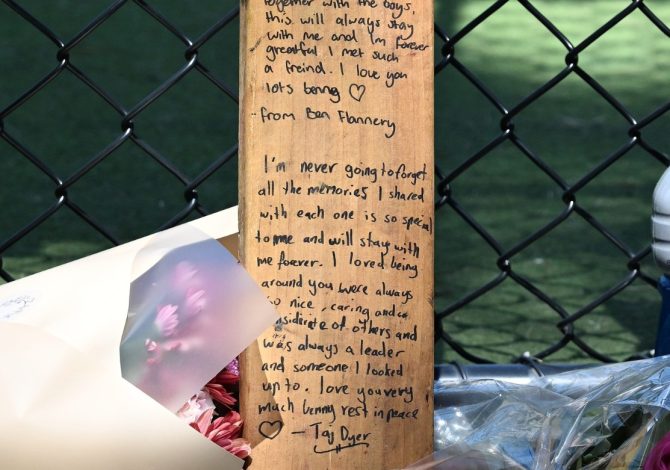 together with the boys,
this will always stay
with me and I'm forever
greatful I met such
a freind. I love you
lots benny ♡
- from Ben Flannery
I'm never going to forget
all the memories I shared
with each one is so special
to me and will stay with
me forever. I loved being
around you were always
so nice, caring and
of others and
was always a leader
and someone I looked
up to. love you very
much benny rest in peace
♡ - Taj Dyer